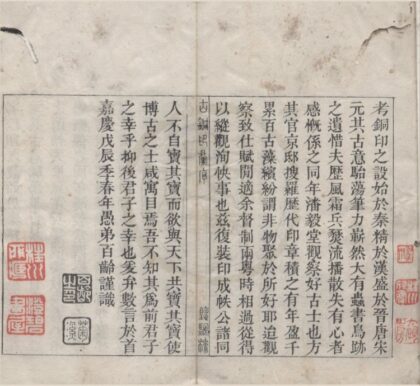 考銅印之設始於秦精於漢盛於晉唐宋
元其古意駘蕩筆力嶄然大有蟲書鳥跡
之遺惜夫歷風霜兵燹流播散失有心者
感慨係之同年潘毅堂觀察好古士也方
其官京邸搜羅歷代印章積之有年盈千
累百古藻繽紛謂非物聚於所好耶迨觀
察致仕賦閒適余督制兩粵時相過從得
以縱觀洵快事也茲復裝印成帙公諸同
人不自寶其寶而欲與天下共寶其寶使
博古之士咸寓目焉吾不知其爲前君子
之幸乎抑後君子之幸也爰弁數言於首
嘉慶戊辰季春年愚弟百齡謹識